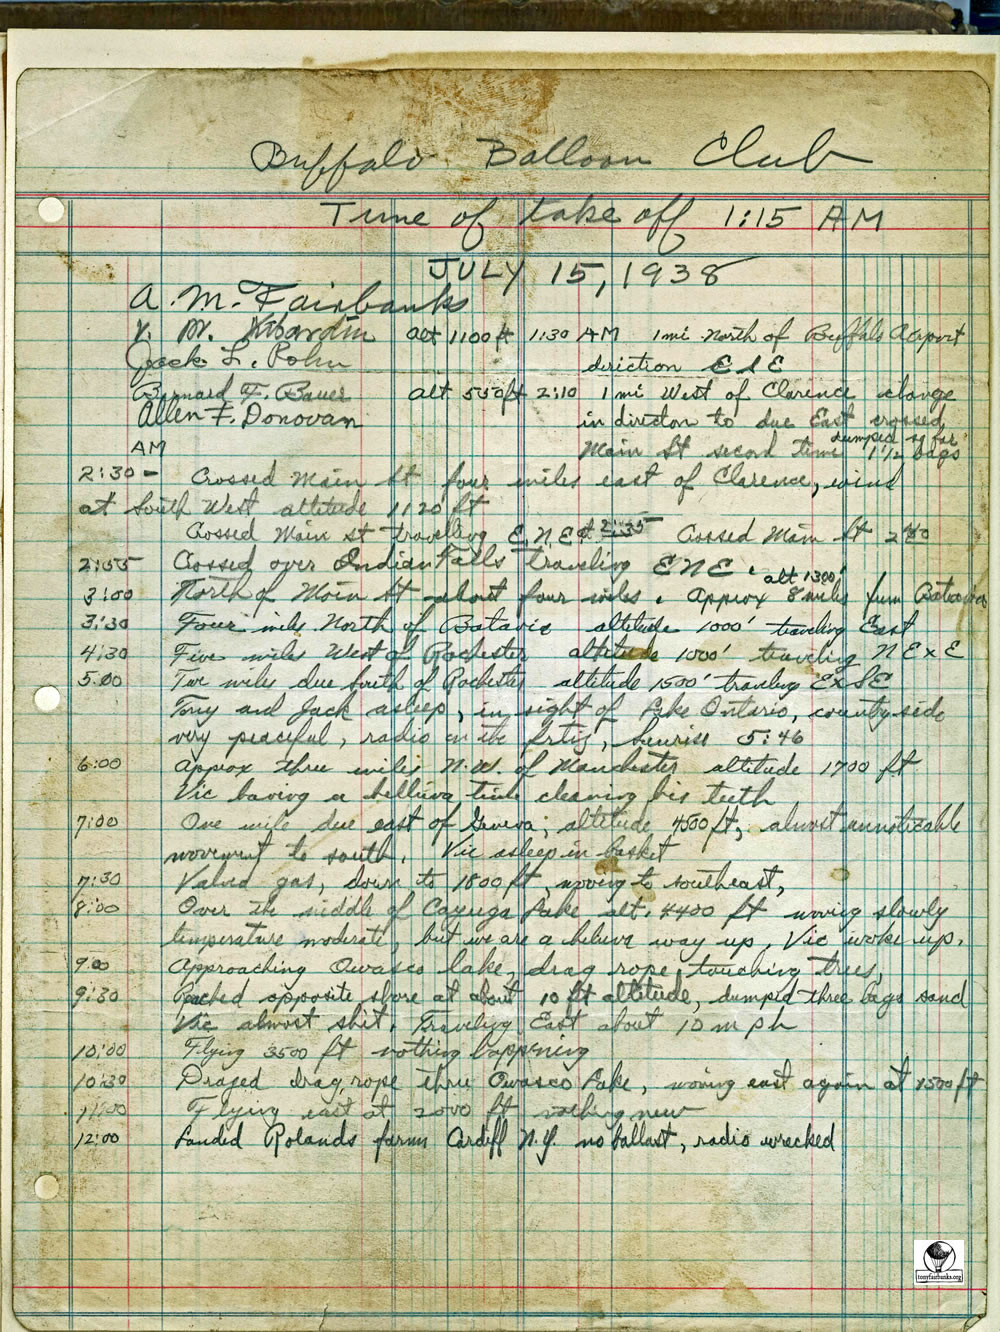 Buffalo Balloon Club
Time of take off 1:15 AM
JULY 15, 1938
A. M. Fairbanks
V. M. alt 1100 ft 1:30 AM 1 mi North of Buffalo Airport
Jack L. Rohu direction E S E
Bernard F. Bauer alt 550 ft 2:10 1 mi West of Clarence change
Allen F. Donovan in directon to due East crossed,
Main St second time dumped so far 1 1/2 bags
AM
2:30 - Crossed Main St four miles east of Clarence, wind
at South West altitude 1120 ft
Crossed Main st travelling E.N.E at 2:35 Crossed Main St 2:40
2:55 Crossed over Indian Falls traveling E N E . alt 1300'
3:00 North of Main St about four miles. Approx 8 miles from Batavia
3:30 Four miles North of Batavia altitude 1000' traveling East
4:30 Five miles West of Rochester altitude 1000' traveling N E x E
5:00 Two miles due South of Rochester altitude 1500' traveling E x S E
Tony and Jack asleep, in sight of Lake Ontario, country side
very peaceful, radio on the fritz, sunrise 5:46
6:00 Approx three miles N.W. of Manchester altitude 1700 ft
Vic having a helluva time cleaning his teeth
7:00 One mile due east of Geneva, altitude 4500 ft, almost unnoticable
movement to south. Vic asleep in basket
7:30 Valved gas, down to 1800 ft, moving to southeast,
8:00 Over the middle of Cayuga Lake alt. 4400 ft moving slowly
temperature moderate, but we are a heluva way up. Vic woke up.
9:00 Approaching Owasco lake, drag rope touching trees,
9:30 Reached opposite shore at about 10 ft altitude, dumped three bags sand
Vic almost shit. Traveling East about 10 mph
10:00 Flying 3500 ft nothing happening
10:30 Draged drag rope thru Owasco Lake, moving east again at 1500 ft
11:00 Flying east at 2000 ft nothing new
12:00 Landed Rolands farm Cardiff N.Y. no ballast, radio wrecked
tonyfairbanks.org